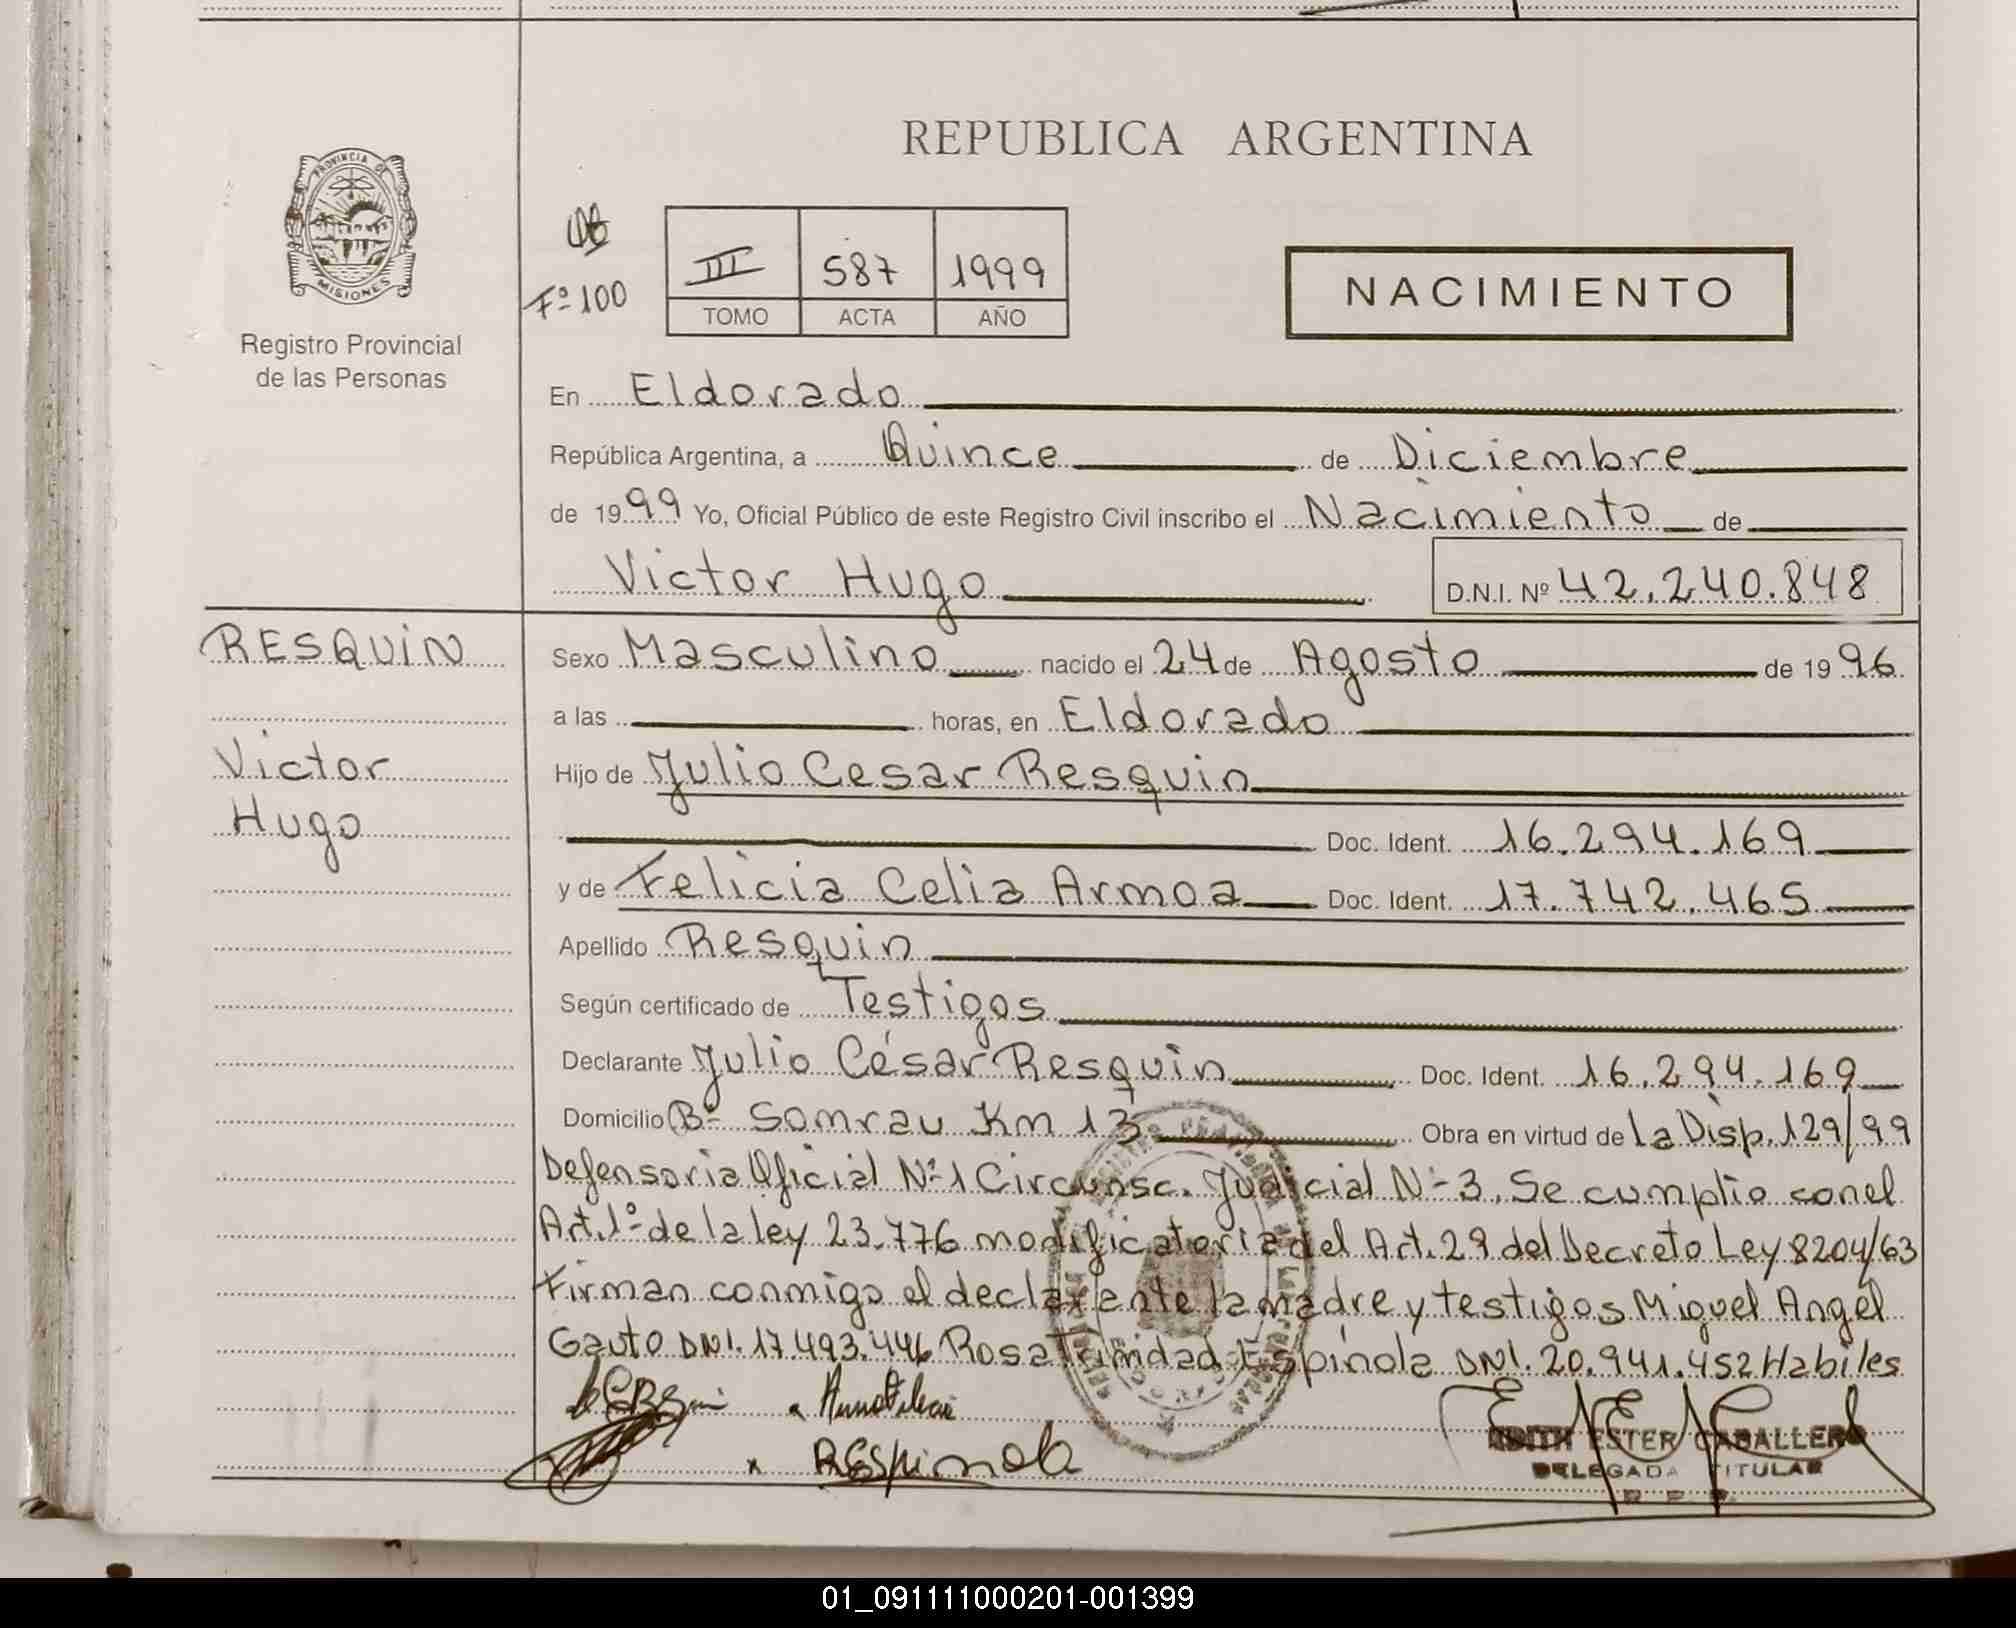 PROVINCIA DE
MISIONES
Registro Provincial
de las Personas
REPUBLICA ARGENTINA
Fº 100
III 587 1999
TOMO ACTA AÑO
NACIMIENTO
En Eldorado
República Argentina, a Quince de Diciembre
de 1999 Yo, Oficial Público de este Registro Civil inscribo el Nacimiento de
Victor Hugo D.N.I. Nº 42.240.848
RESQUIN
Victor
Hugo
Sexo Masculino nacido el 24 de Agosto de 1996
a las horas, en Eldorado
Hijo de Julio Cesar Resquin
Doc. Ident. 16.294.169
y de Felicia Celia Armoa Doc. Ident. 17.742.465
Apellido Resquin
Según certificado de Testigos
Declarante Julio César Resquin Doc. Ident. 16.294.169
Domicilio Bº Somrau Km 13 Obra en virtud de la Disp. 129/99
Defensoria Oficial Nº 1 Circunsc. Judicial Nº 3. Se cumplio con el
Art. 1º de la ley 23.776 modificatoria del Art. 29 del Decreto Ley 8204/63
Firman conmigo el declarante la madre y testigos Miguel Angel
Gauto DNI. 17.493.446 Rosa Trinidad Espinola DNI. 20.941.452 Habiles
x REspinola
EDITH ESTER CABALLERO
DELEGADA TITULAR
R. P. P.
01_091111000201-001399